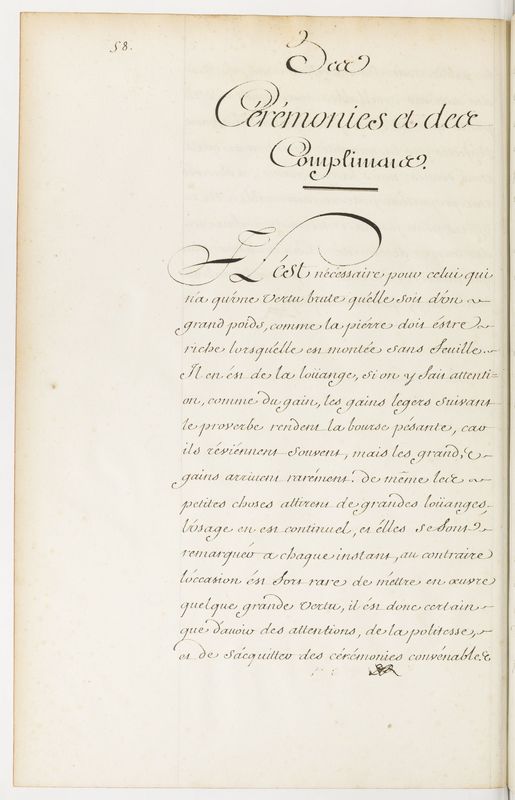 58.
Des
Cérémonies et des
Complimans.
Il ést nécéssaire pour celui qui
n'a qu'une vertu brute qu'élle soit d'un
grand poids, comme la piérre doit éstre
riche lorsqu'élle est montée sans feuille.
Il en ést de la loüange, si on y fait attenti=
on, comme du gain, les gains legers suivant
le proverbe rendent la bourse pésante, car
ils réviénnent souvent, mais les grands
gains arrivent rarément: de même les
petites choses attirent de grandes loüanges.
L'úsage en est continuel, et élles se font
remarquér a chaque instant, au contraire
l'óccasion ést fort rare de méttre en œuvre
quelque grande vertu, il ést donc certain
que d'avoir des attentions, de la politesse,
et de s'ácquitter des cérémonies convénables